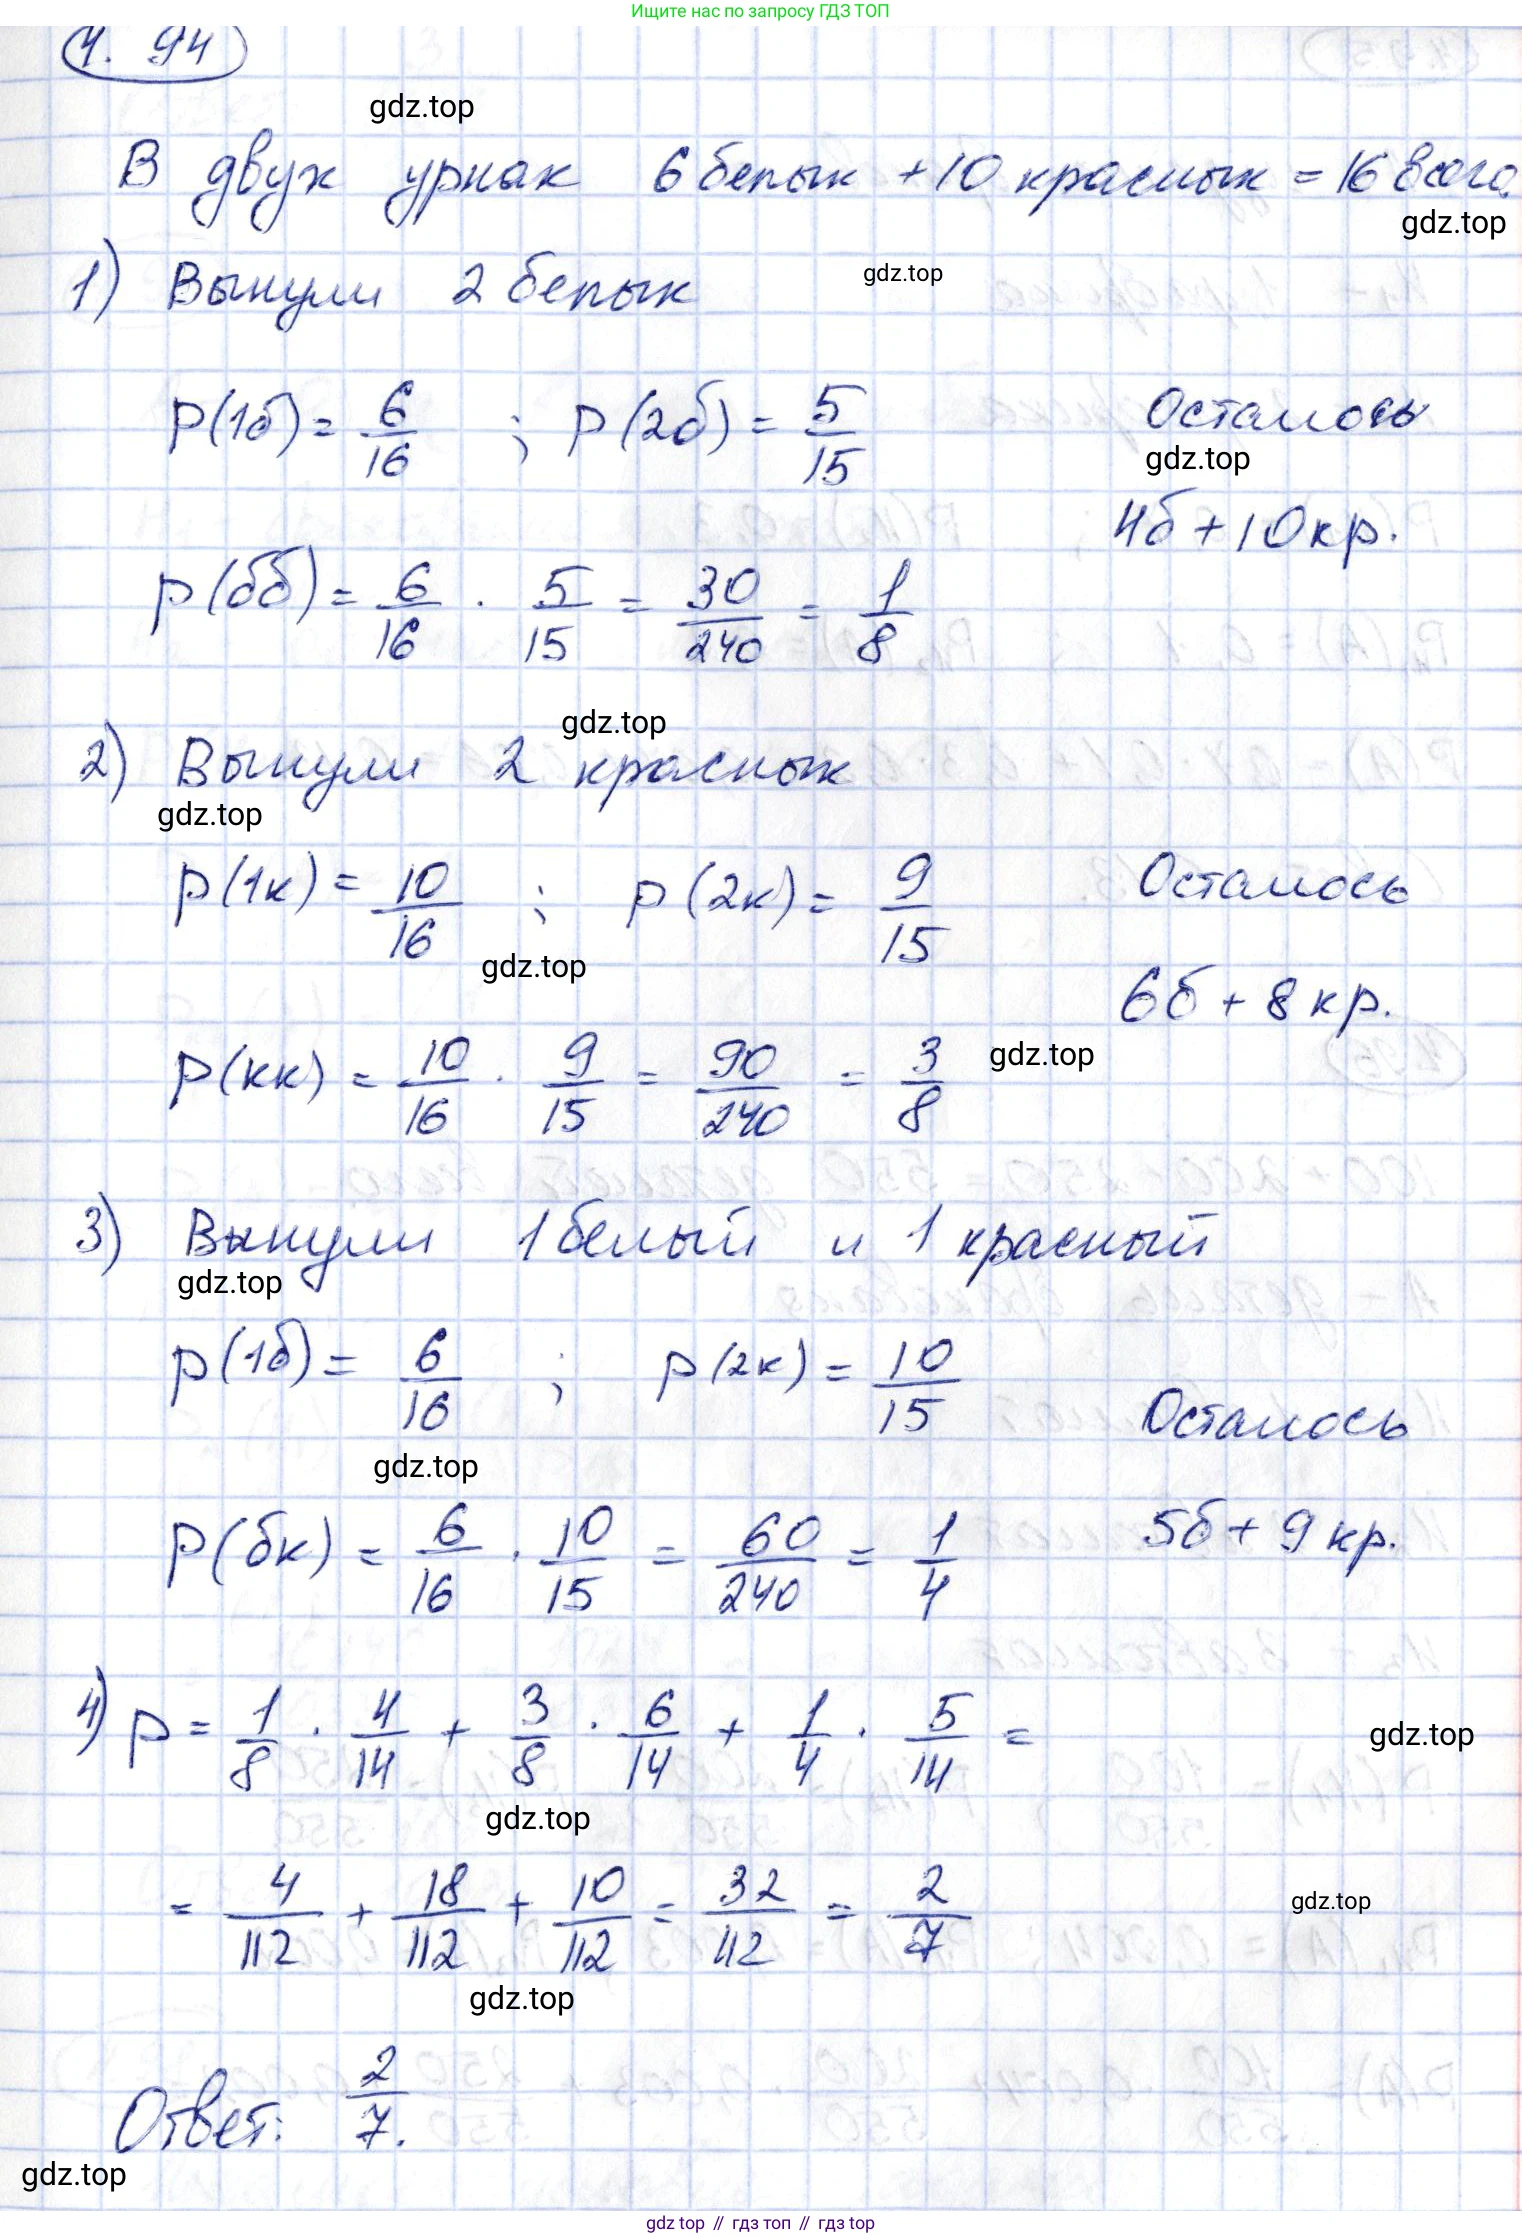 Ищите нас по запросу ГДЗ ТОП
4. 94
gdz.top
В двух урнах 6 белых + 10 красных = 16 всего.
gdz.top
1) Вынули 2 белых
gdz.top
P(1б) = 6/16 ; P(2б) = 5/15
Осталось
gdz.top
4б + 10 кр.
P(бб) = 6/16 · 5/15 = 30/240 = 1/8
gdz.top
2) Вынули 2 красных
gdz.top
P(1к) = 10/16 ; P(2к) = 9/15
Осталось
gdz.top
6б + 8 кр.
P(кк) = 10/16 · 9/15 = 90/240 = 3/8
gdz.top
3) Вынули 1 белый и 1 красный
gdz.top
P(1б) = 6/16 ; P(2к) = 10/15
Осталось
gdz.top
P(бк) = 6/16 · 10/15 = 60/240 = 1/4
5б + 9 кр.
4) P = 1/8 · 4/14 + 3/8 · 6/14 + 1/4 · 5/14 =
gdz.top
gdz.top
= 4/112 + 18/112 + 10/112 = 32/112 = 2/7
gdz.top
gdz.top
Ответ: 2/7.
gdz.top
gdz top // гдз топ // гдз top